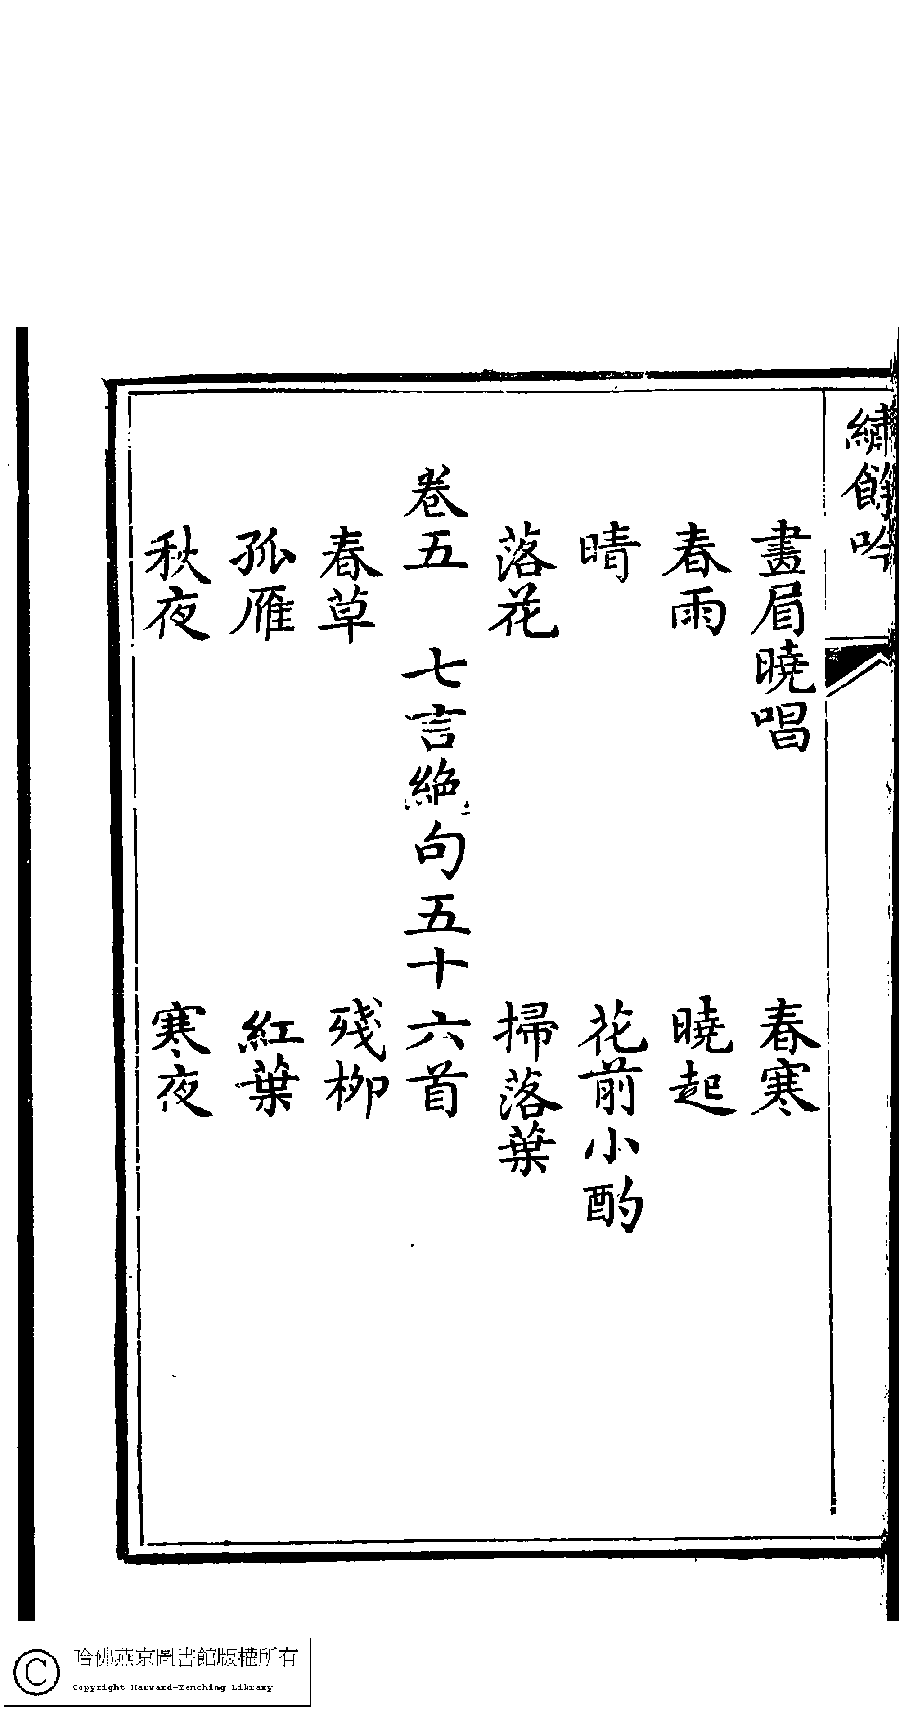 繡餘吟
畫眉曉唱　春寒
春雨　曉起
晴　花前小酌
落花　掃落葉
卷五　七言絶句五十六首
春草　殘柳
孤雁　紅葉
秋夜　寒夜
哈佛燕京圖書館版權所有
Copyright Harvard-Yenching Library